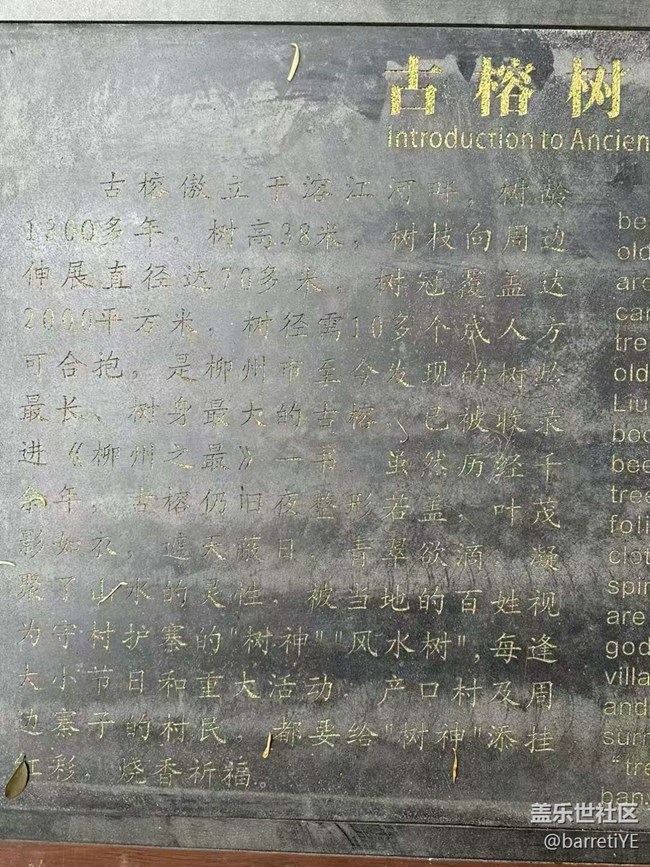 古榕树
Introduction to Ancien
古榕傲立于溶江河畔，树龄
1200多年，树高38米，树枝向周边
伸展直径达70多米，树冠覆盖达
2000平方米，树径需10多个成人方
可合抱，是柳州市至今发现的树龄
最长、树身最大的古榕，已被收录
进《柳州之最》一书。虽然历经千
余年，古榕仍旧夜整形若盖，叶茂
影如衣，遮天蔽日，青翠欲滴，凝
聚了山水的灵性，被当地的百姓视
为守村护寨的"树神""风水树"，每逢
大小节日和重大活动 产口村及周
边寨子的村民，都要给"树神"添挂
红彩，烧香祈福。
be
old
are
can
tree
old
Liu
boo
bee
tree
foli
clot
spir
are
god
villa
and
surr
"tre
bany
盖乐世社区
@barretiYE